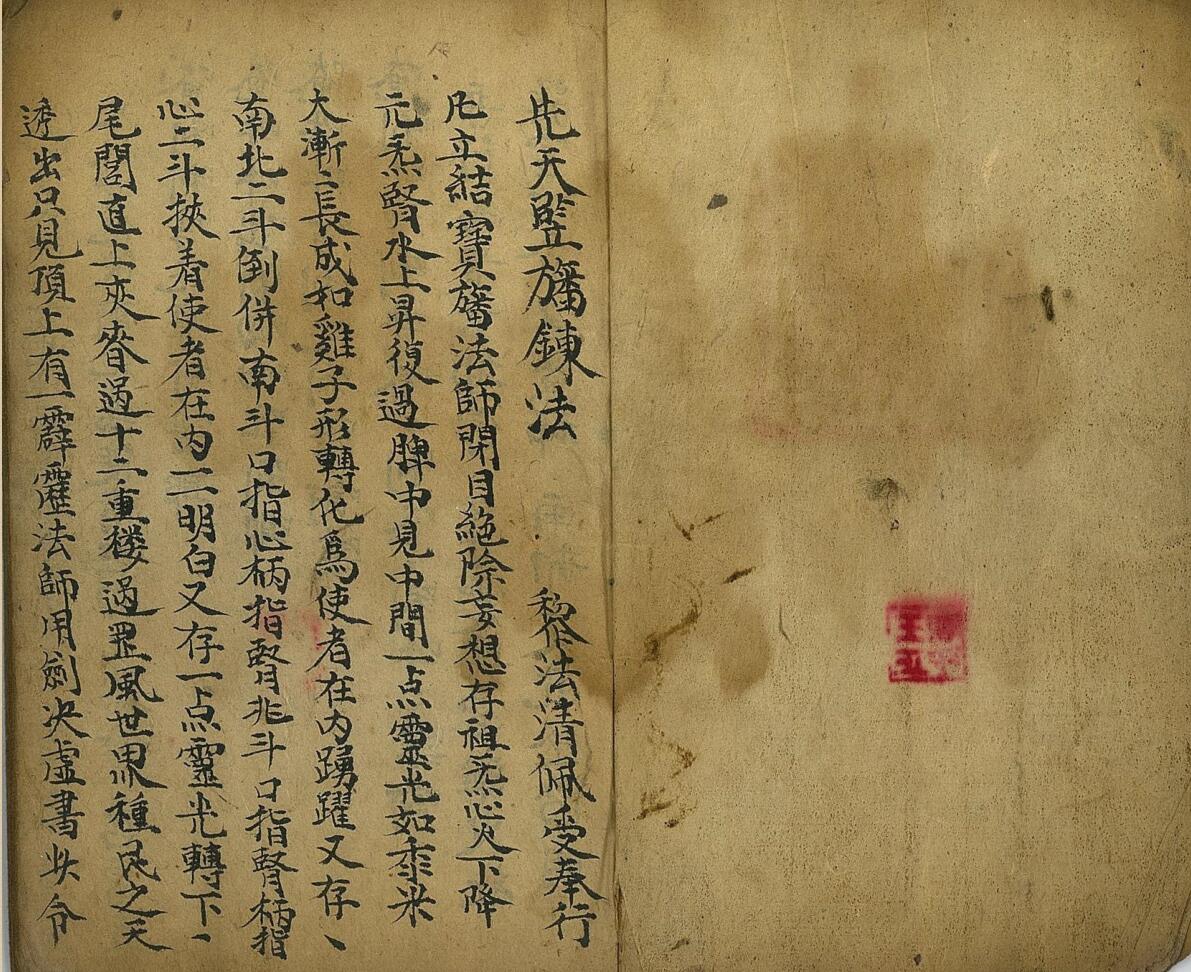 先天竪旛鍊法 黎作法清佩受奉行
凡立結寶旛法師閉目絶除妄想存祖炁心火下降
元炁腎水上昇復過脾中見中間一点靈光如黍米
大漸〻長成如雞子形轉化爲使者在內踴躍又存、
南北二斗倒併南斗口指心柄指腎北斗口指腎柄指
心二斗挾着使者在內一一明白又存一点靈光轉下、
尾閭直上夾脊過十二重楼過罡風世界種民之天
透出只見頂上有一霹靂法師用劍決虛書 令